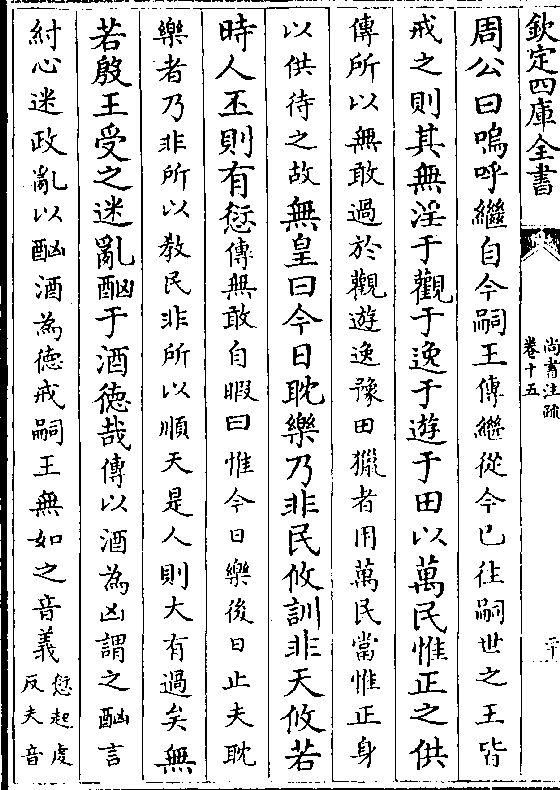 欽定四庫全書
尚書注疏
卷十五
二十
周公曰嗚呼繼自今嗣王傳繼從今已往嗣世之王皆
戒之則其無淫于觀于逸于遊于田以萬民惟正之供
傳所以無敢過於觀遊逸豫田獵者用萬民當惟正身
以供待之故無皇曰今日耽樂乃非民攸訓非天攸若
時人丕則有愆傳無敢自暇曰惟今日樂後日止夫耽
樂者乃非所以教民非所以順天是人則大有過矣無
若殷王受之迷亂酗于酒德哉傳以酒為凶謂之酗言
紂心迷政亂以酗酒為德戒嗣王無如之音義愆起虔
反夫音